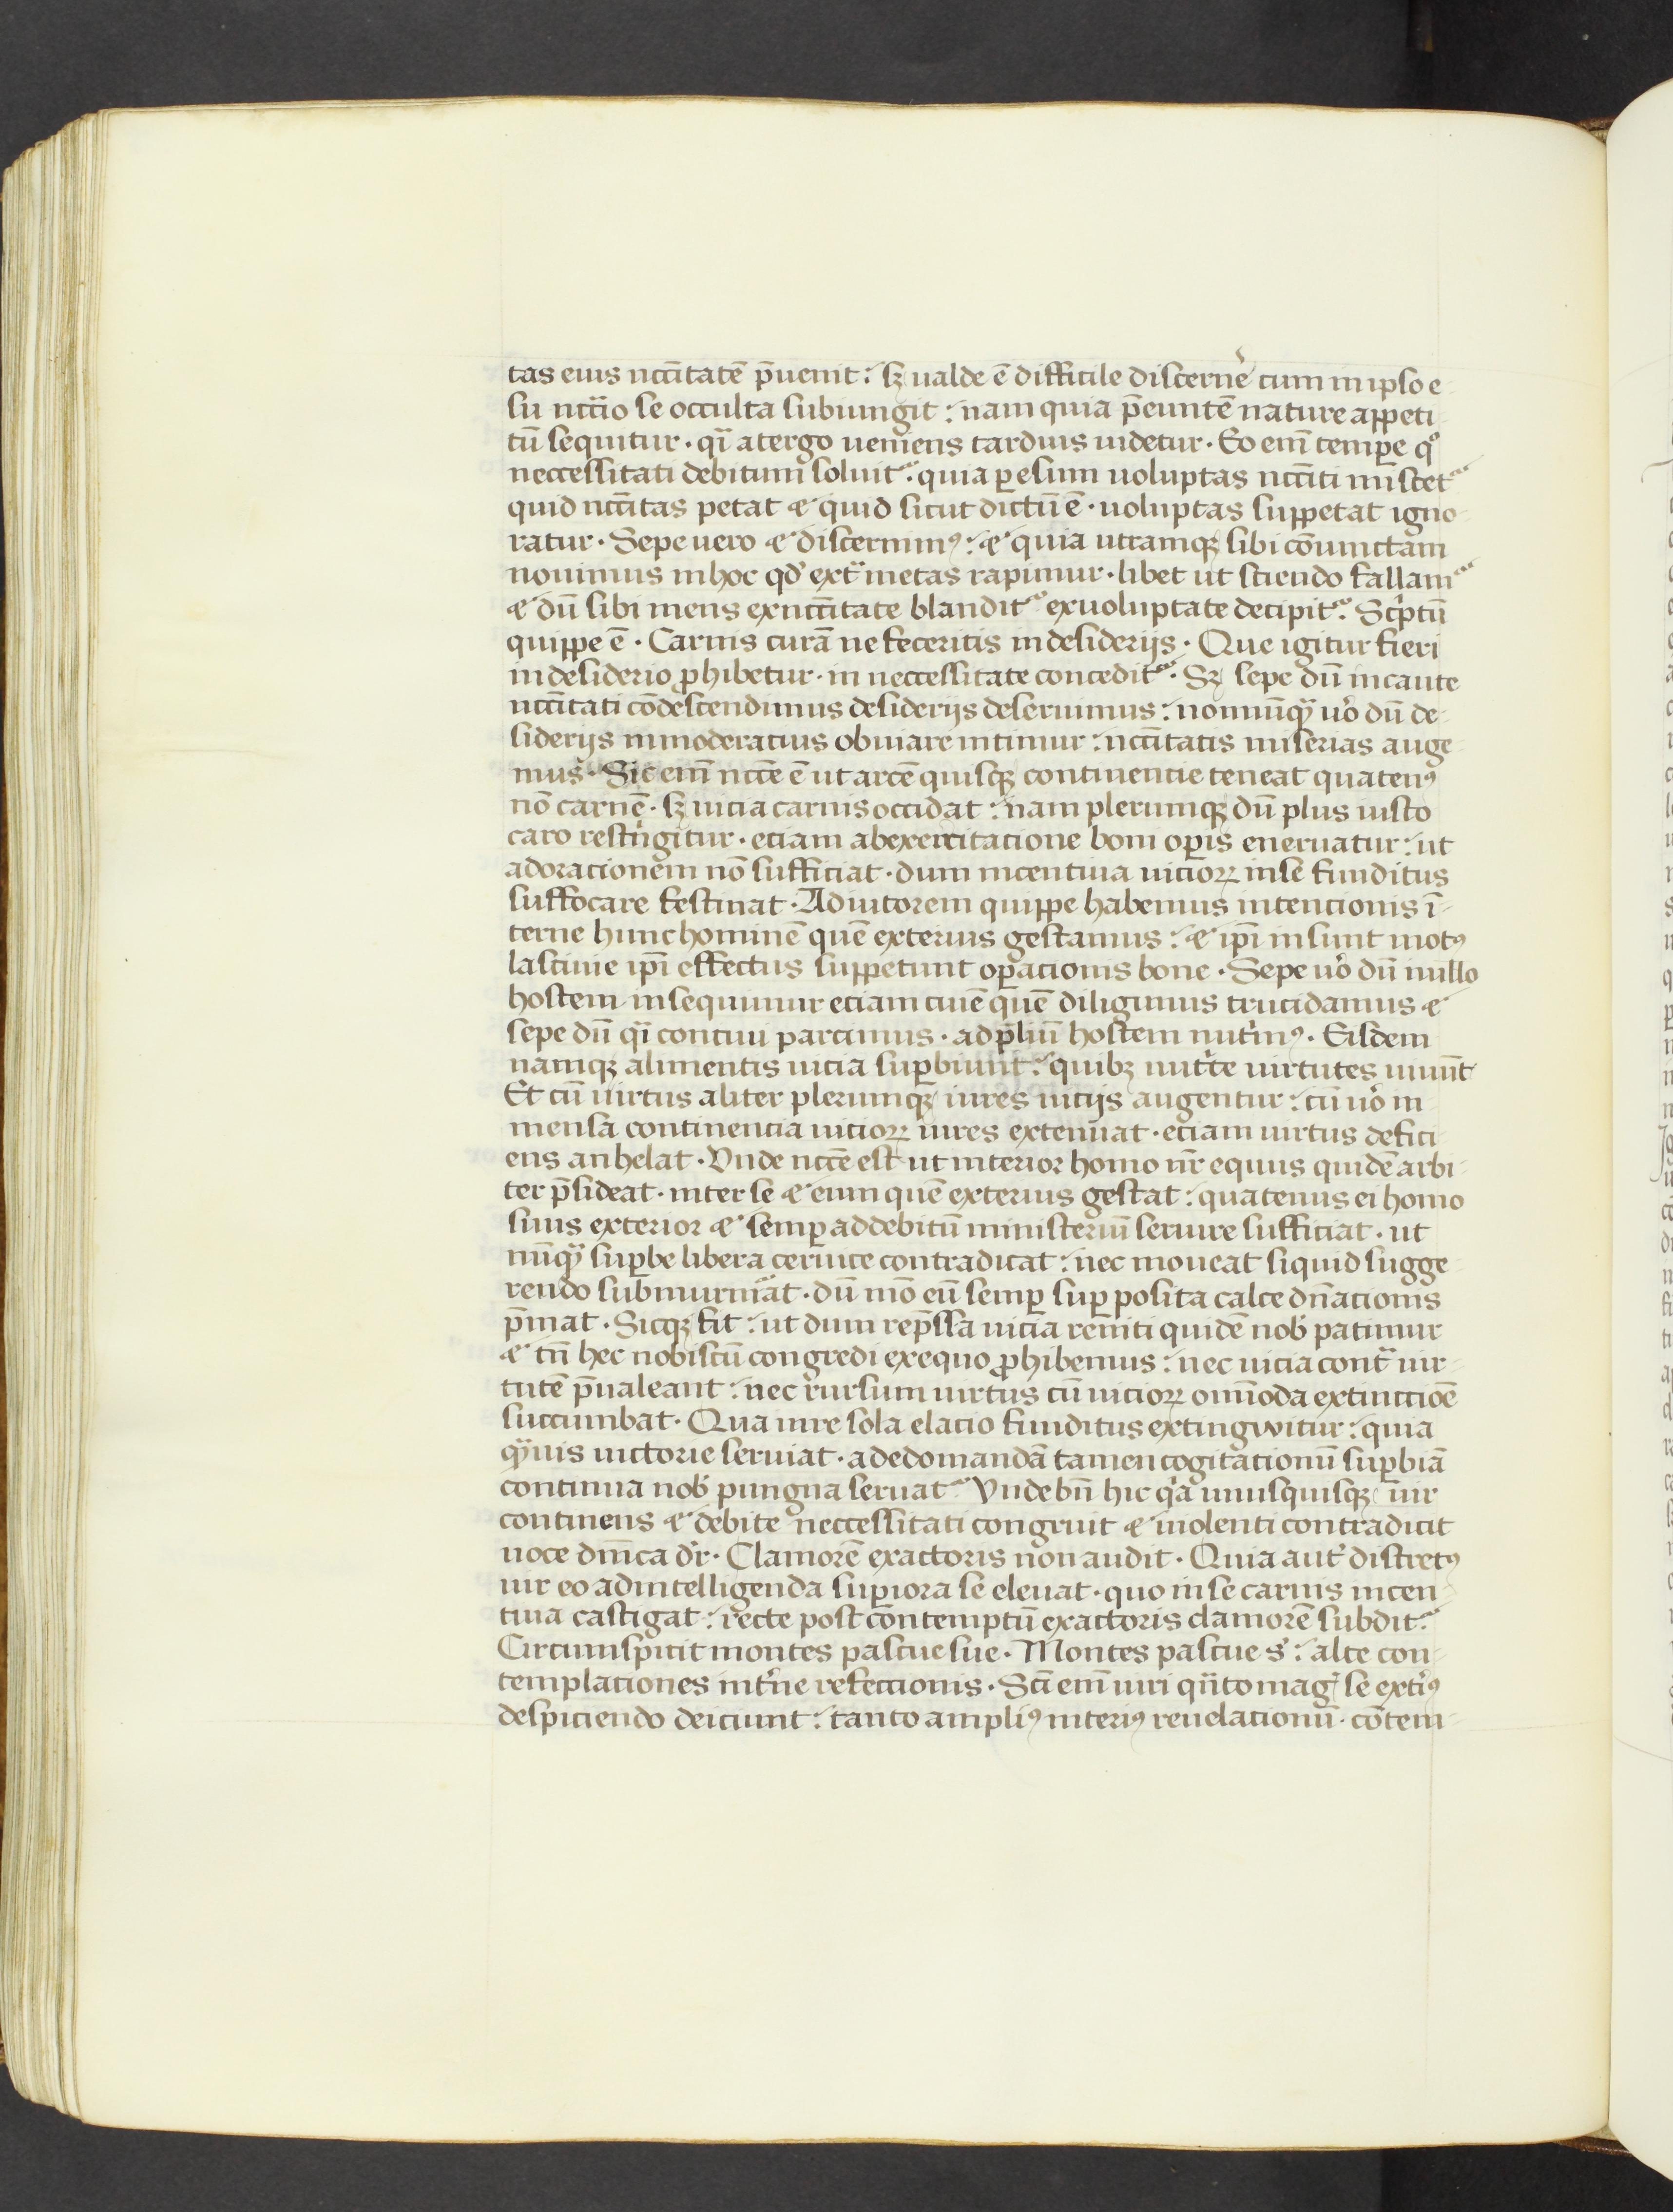 tas eius nccitatē p̄uenit : sꝫ ualde ē difficile discerne᷑ cum in ipso e
su nccīo se occulta subiungit : nam quia p̄euntē nature appeti
tū sequitur · q̄i a tergo ueniens tardius uidetur · Eo eni᷑ tempꝑe qͦ
neccessitati debitum soluit᷑ · quia ꝑ esum uoluptas nccīti miscet᷑
quid nccītas petat ⁊ quid sicut dictū ē · uoluptas suppetat igno
ratur · Sepe uero ⁊ discerninꝰ : ⁊ quia utramqꝫ sibi cōiunctam
nouimus in hoc qd᷑ ext᷑ metas rapimur · libet ut sciendo fallam᷑
⁊ dū sibi mens ex nccītate blandit᷑ ex uoluptate decipit᷑ · Scp᷑tū
quippe ē · Carnis curā ne feceritis in desiderijs · Que igitur fieri
in desiderio ꝓhibetur · in neccessitate concedit᷑ · Sꝫ sepe dū incaute
nccītati cōdescendimus desiderijs deseruimus : nonnūqᷓ uo᷑ dū de
siderijs inmoderatius obuiare nitimur : nccītatis miserias auge
mus · Sic eni᷑ nccē ē ut arcē quisqꝫ continentie teneat quatenꝰ
nō carnē · sꝫ uicia carnis occidat : nam plerumqꝫ dū plus iusto
caro restri᷑gitur · eciam ab exercitacione boni oꝑis eneruatur : ut
ad oracionem nō sufficiat · dum incentiua uicioꝝ in se funditus
suffocare festinat · Adiutorem quippe habemus intencionis ī
terne hunc hominē quē exterius gestamus : ⁊ ip̄i insunt motꝰ
lasciuie ip̄i effectus suppetunt oꝑacionis bone · Sepe uo᷑ dū in illo
hostem insequimur eciam ciuē quē diligimus trucidamus ⁊
sepe dū q̄i conciui parcimus · ad p̄liū hostem nutri᷑mꝰ · Eisdem
namqꝫ alimentis uicia suꝑbiunt : quibꝫ nutri᷑te uirtutes uiuūt
Et cū uirtus aliter plerumqꝫ uires uicijs augentur : cū uo᷑ in
mensa continencia uicioꝝ uires extenuat · eciam uirtus defici
ens anhelat · Vnde nccē est ut interior homo nr̄ equus quidē arbi
ter p̄sideat · inter se ⁊ eum quē exterius gestat : quatenus ei homo
suus exterior ⁊ semꝑ ad debitū ministeriū seruire sufficiat · ut
nūqᷓ suꝑbe libera ceruice contradicat : nec moueat siquid sugge
rendo submurmᷓat · dū mō eū semꝑ suꝑ posita calce dn̄acionis
p̄mat · Sicqꝫ fit : ut dum rep̄ssa uicia reniti quidē nob᷑ patimur
⁊ tn̄ hec nobiscū congredi ex equo ꝓhibemus : nec uicia contᷓ uir
tutē p̄ualeant : nec rursum uirtus cū uicioꝝ omīoda extinctiōe
succumbat · Qua in re sola elacio funditus extingwitur : quia
qᷓuis uictorie seruiat · ad edomandā tamen cogitacionū suꝑbiā
continua nob᷑ pungna seruat᷑ Vnde bn̄ hic qᷓa unusquisqꝫ uir
continens ⁊ debite neccessitati congruit ⁊ uiolenti contradicit
uoce dnīca dr᷑ · Clamorē exactoris non audit · Quia aut᷑ discretꝰ
uir eo ad intelligenda suꝑiora se eleuat · quo in se carnis incen
tiua castigat : recte post contemptū exactoris clamorē subdit᷑ ·
Circumspicit montes pascue sue · Montes pascue s᷑ : alte con
templaciones int᷑ne refeccionis · Sci᷑ eni᷑ uiri qᷓnto mag᷑ se exti᷑ꝰ
despiciendo deiciunt : tanto ampliꝰ interiꝰ reuelacionū · cōtem